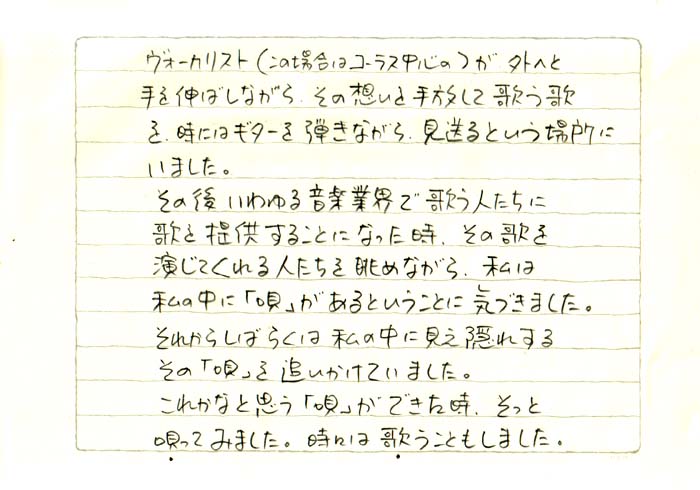 ヴォーカリスト(この場合はコーラス中心の)が外へと
手を伸ばしながら、その想いを手放して歌う歌
を、時にはギターを弾きながら、見送るという場所に
いました。
その後いわゆる音楽業界で歌う人たちに
歌を提供することになった時、その歌を
演じてくれる人たちを眺めながら、私は
私の中に「唄」があるということに気づきました。
それからしばらくは私の中に見え隠れする
その「唄」を追いかけていました。
これかなと思う「唄」ができた時、そっと
唄ってみました。時には歌うこともしました。